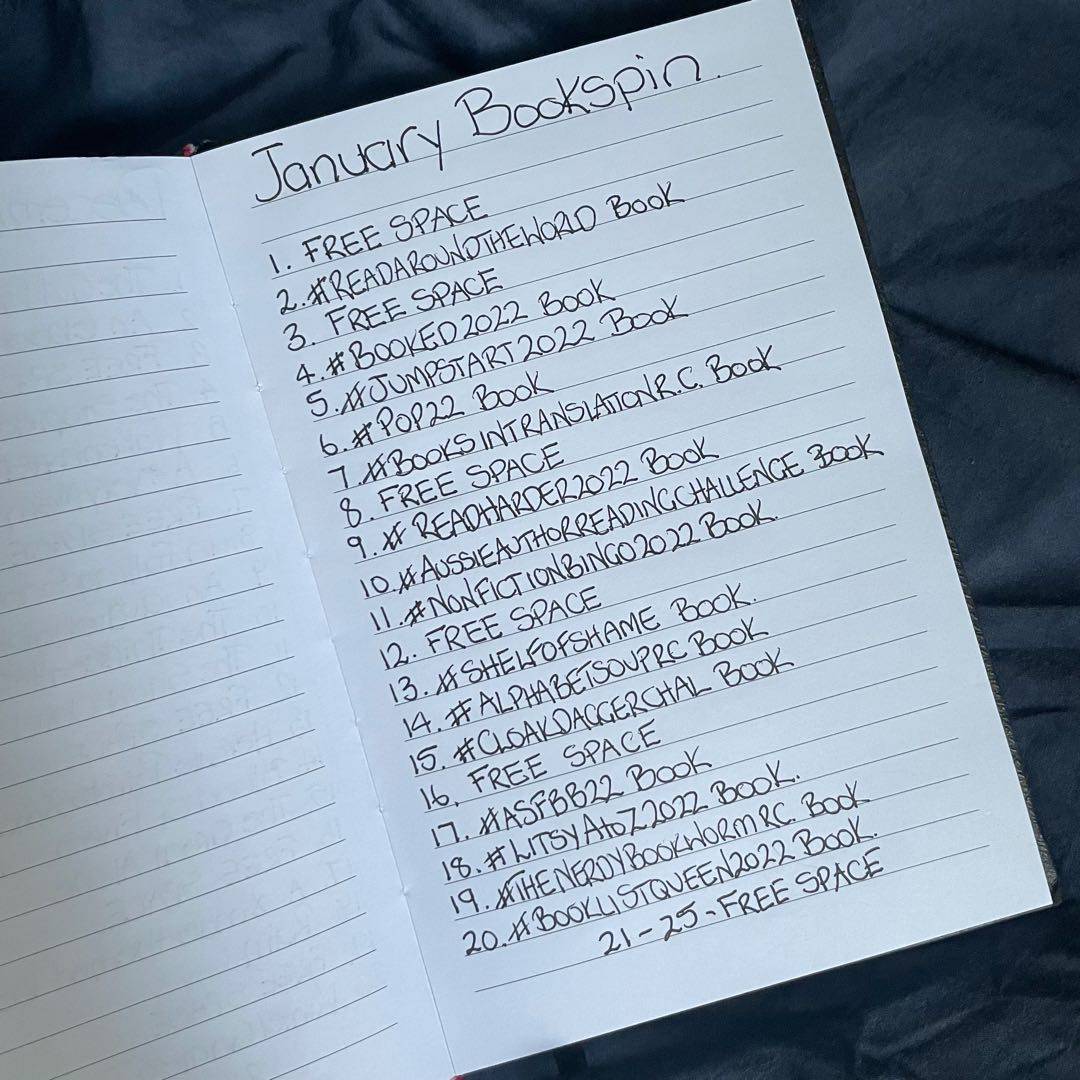 January Bookspin.
1. FREE SPACE
2. #READAROUNDTHEWORLD BOOK
3. FREE SPACE
4. #BOOKED2022 BOOK
5. #JUMPSTART2022 BOOK
6. #POP22 BOOK
7. #BOOKSINTRANSLATIONR.C. BOOK
8. FREE SPACE
9. #READHARDER2022 BOOK
10. #AUSSIEAUTHORREADINGCHALLENGE BOOK
11. #NONFICTIONBINGO2022 BOOK.
12. FREE SPACE
13. #SHELFOFSHAME BOOK.
14. #ALPHABETSOUPRC BOOK
15. #CLOAKDAGGERCHAL BOOK
16. FREE SPACE
17. #ASFBB22 BOOK
18. #LITSYAtoZ2022 BOOK.
19. #THENERDYBOOKWORMR.C. BOOK
20. #BOOKLISTQUEEN2022 BOOK.
21-25-FREE SPACE